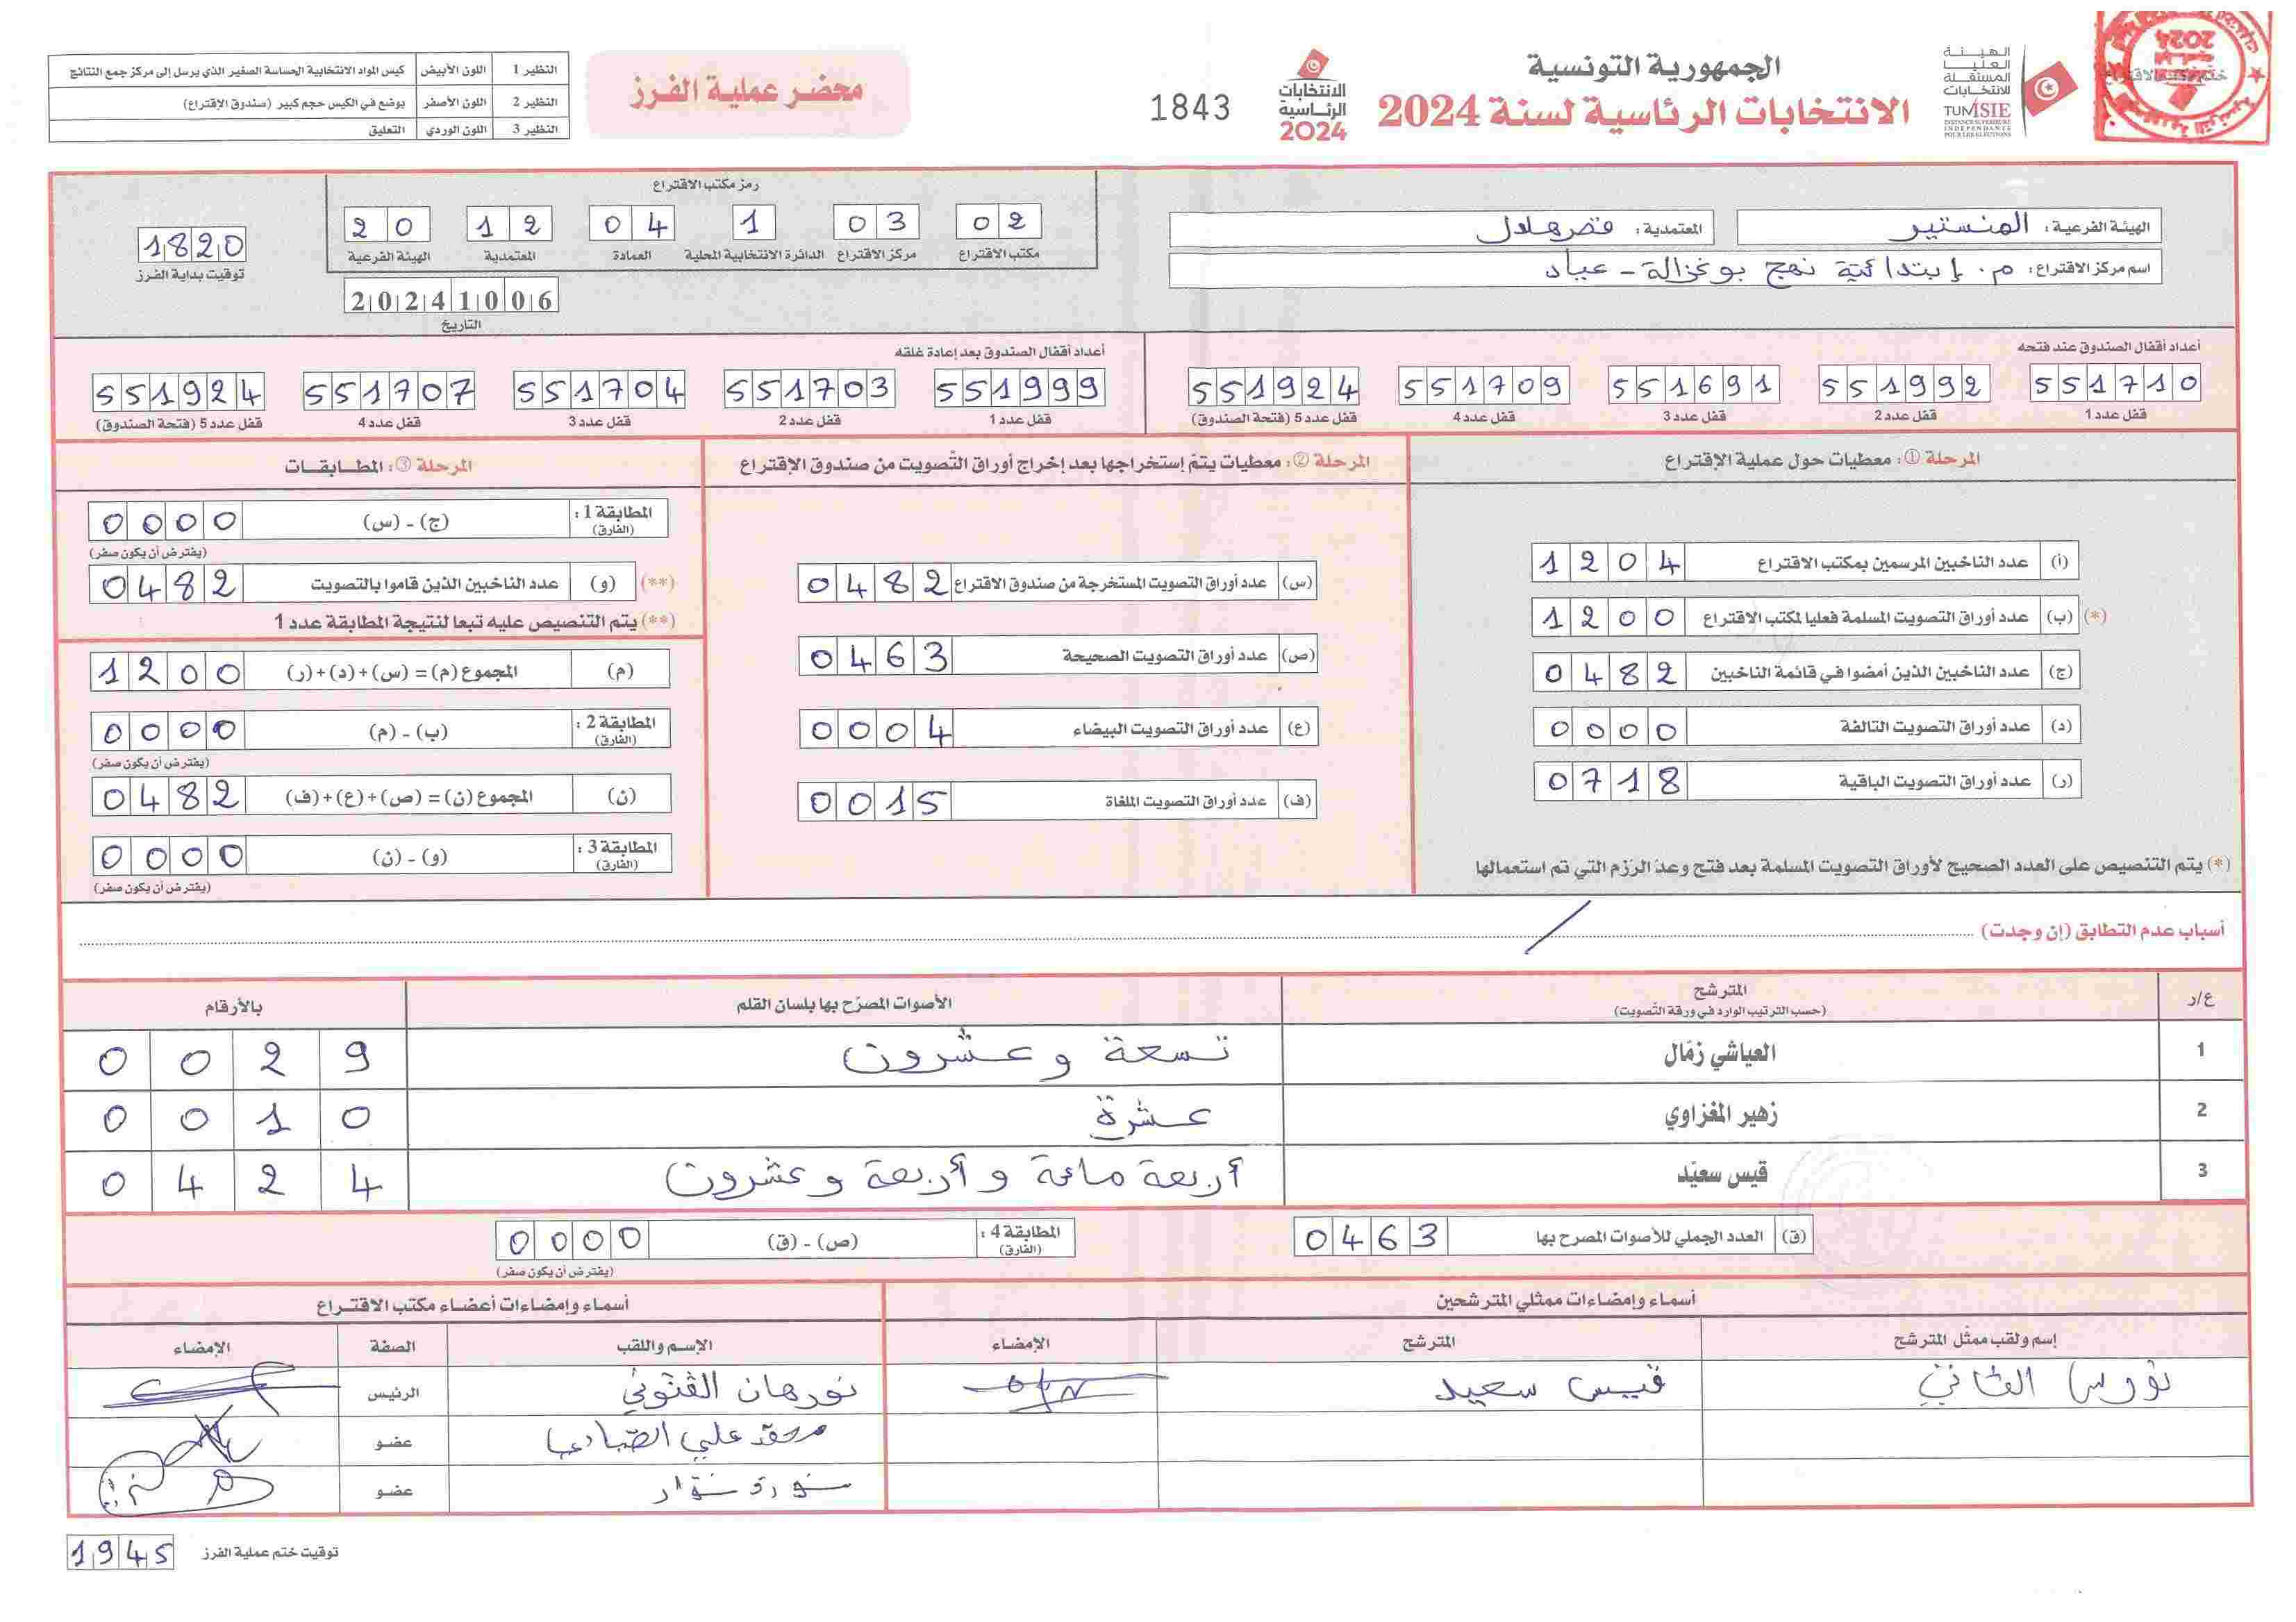 الهيئة
العليا
المستقلة
للانتخابات
TUNISIE
INSTANCE SUPERIEURE
INDEPENDANTE
POUR LES ELECTIONS
ختم مكتب الاقتراع
2024
الجمهورية التونسية
الانتخابات الرئاسية لسنة 2024
الانتخابات
الرئاسية
2024
1843
محضر عملية الفرز
النظير 1 اللون الأبيض كيس المواد الانتخابية الحساسة الصغير الذي يرسل إلى مركز جمع النتائج
النظير 2 اللون الأصفر يوضع في الكيس حجم كبير (صندوق الإقتراع)
النظير 3 اللون الوردي التعليق
الهيئة الفرعية: المنستير
المعتمدية: قصر هلال
اسم مركز الاقتراع: م. إبتدائية نهج بوغزالة - عياد
رمز مكتب الاقتراع
02 03 1 04 12 20
مكتب الاقتراع مركز الاقتراع الدائرة الانتخابية المحلية العمادة المعتمدية الهيئة الفرعية
20241006
التاريخ
1820
توقيت بداية الفرز
أعداد أقفال الصندوق عند فتحه
551710 551992 551691 551709 551924
قفل عدد 1 قفل عدد 2 قفل عدد 3 قفل عدد 4 قفل عدد 5 (فتحة الصندوق)
أعداد أقفال الصندوق بعد إعادة غلقه
551999 551703 551704 551707 551924
قفل عدد 1 قفل عدد 2 قفل عدد 3 قفل عدد 4 قفل عدد 5 (فتحة الصندوق)
المرحلة ①: معطيات حول عملية الإقتراع
(أ) عدد الناخبين المرسمين بمكتب الاقتراع 1204
(*) (ب) عدد أوراق التصويت المسلمة فعليا لمكتب الاقتراع 1200
(ج) عدد الناخبين الذين أمضوا في قائمة الناخبين 0482
(د) عدد أوراق التصويت التالفة 0000
(ر) عدد أوراق التصويت الباقية 0718
(*) يتم التنصيص على العدد الصحيح لأوراق التصويت المسلمة بعد فتح وعدّ الرّزم التي تم استعمالها
المرحلة ②: معطيات يتمّ إستخراجها بعد إخراج أوراق التّصويت من صندوق الإقتراع
(س) عدد أوراق التصويت المستخرجة من صندوق الاقتراع 0482
(ص) عدد أوراق التصويت الصحيحة 0463
(ع) عدد أوراق التصويت البيضاء 0004
(ف) عدد أوراق التصويت الملغاة 0015
المرحلة ③: المطابقات
المطابقة 1: (الفارق) (ج) - (س) 0000
(يفترض أن يكون صفر)
(**) (و) عدد الناخبين الذين قاموا بالتصويت 0482
(**) يتم التنصيص عليه تبعا لنتيجة المطابقة عدد 1
(م) المجموع (م) = (س) + (د) + (ر) 1200
المطابقة 2: (الفارق) (ب) - (م) 0000
(يفترض أن يكون صفر)
(ن) المجموع (ن) = (ص) + (ع) + (ف) 0482
المطابقة 3: (الفارق) (و) - (ن) 0000
(يفترض أن يكون صفر)
أسباب عدم التطابق (إن وجدت) /
ع/ر المترشح الأصوات المصرّح بها بلسان القلم بالأرقام
(حسب الترتيب الوارد في ورقة التّصويت)
1 العياشي زمّال تسعة وعشرون 0029
2 زهير المغزاوي عشرة 0010
3 قيس سعيّد أربعة مائة وأربعة وعشرون 0424
(ق) العدد الجملي للأصوات المصرح بها 0463
المطابقة 4: (الفارق) (ص) - (ق) 0000
(يفترض أن يكون صفر)
أسماء وإمضاءات ممثلي المترشحين
إسم ولقب ممثّل المترشح المترشح الإمضاء
الثاني قيس سعيد
أسماء وإمضاءات أعضاء مكتب الاقتراع
الإسم واللقب الصفة الإمضاء
نورهان الرئيس
محمد علي عضو
نورة عضو
توقيت ختم عملية الفرز 1945